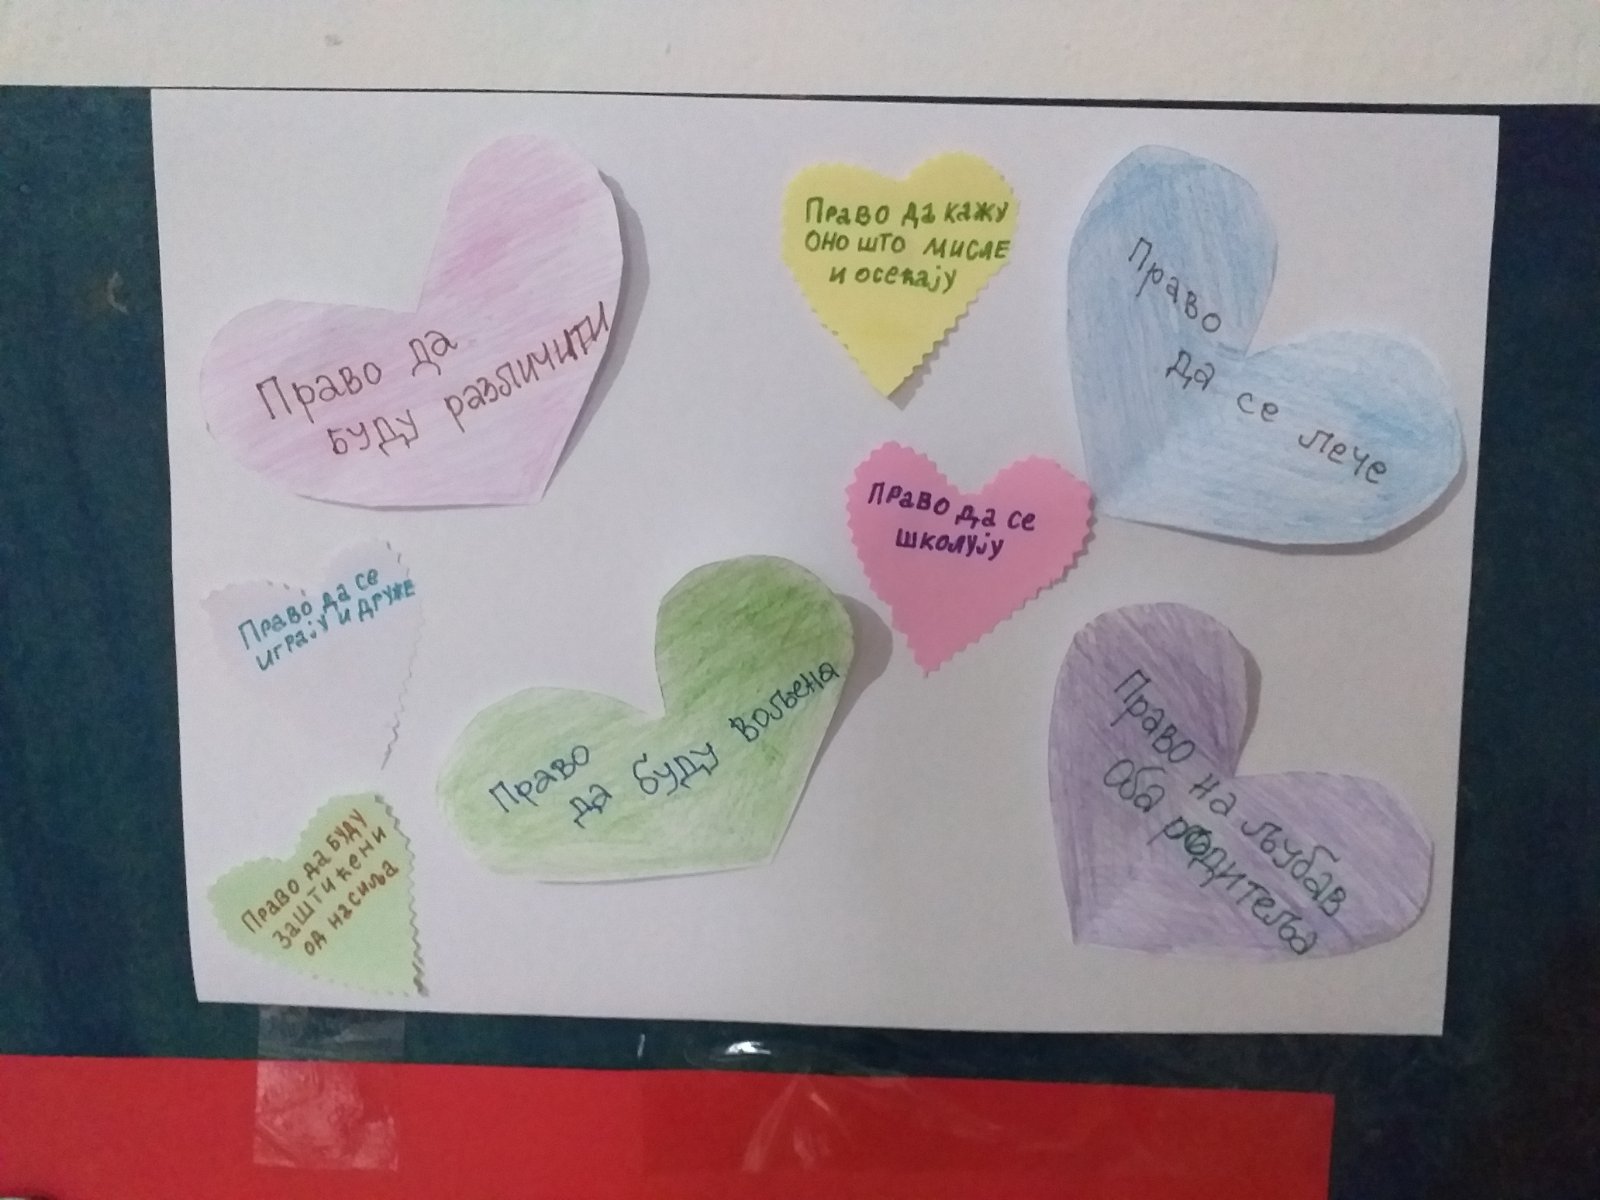 Право да
буду различити
Право да кажу
оно што мисле
и осећају
Право
да се лече
Право да се
школују
Право да се
играју и друже
Право
да буду вољена
Право на љубав
оба родитеља
Право да буду
заштићени
од насиља